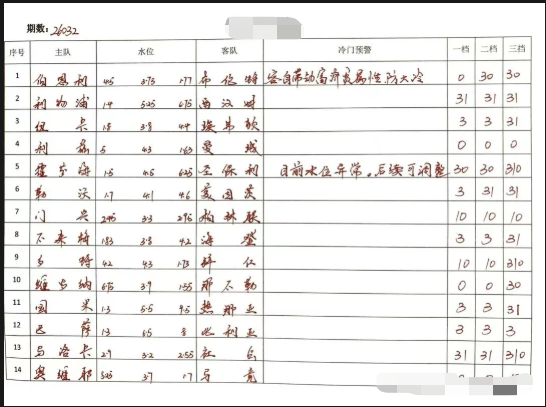 期数: 26032
序号 主队 水位 客队 冷门预警 一档 二档 三档
1 伯恩利 4.5 3.75 1.77 布伦特 容自带动荡 属性防大冷 0 30 30
2 利物浦 1.4 5.25 6.75 西汉姆 31 31 31
3 纽卡 1.8 3.8 4.4 埃弗顿 3 3 31
4 利兹 5 4.3 1.63 曼城 0 0 0
5 霍芬海 1.5 4.5 6.25 圣保利 目前水位异常,后续可调整 30 30 310
6 勒沃 1.7 4.1 4.6 美因茨 3 31 31
7 门兴 2.45 3.3 2.95 柏林联 10 10 10
8 不来梅 1.83 3.8 4.2 海登 3 3 31
9 多特 4.2 4.3 1.73 拜仁 10 10 310
10 维罗纳 6.75 3.9 1.55 那不勒 0 0 30
11 国米 1.3 5.5 9.5 热那亚 3 3 31
12 巴萨 1.3 6.5 8 比利亚 3 3 3
13 马洛卡 2.9 3.2 2.55 社会 31 31 310
14 奥维耶 5.25 3.7 1.7 马竞